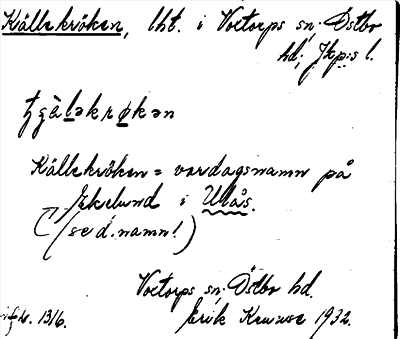 Källekröken, lht. i Voetorps sn; Östbo
hd; Jkp:s l.
Källekröken = vardagsnamn på
Ekelund i Ulås.
(se d. namn!)
Voetorps sn; Östbo hd.
Erik 1932.
1316.